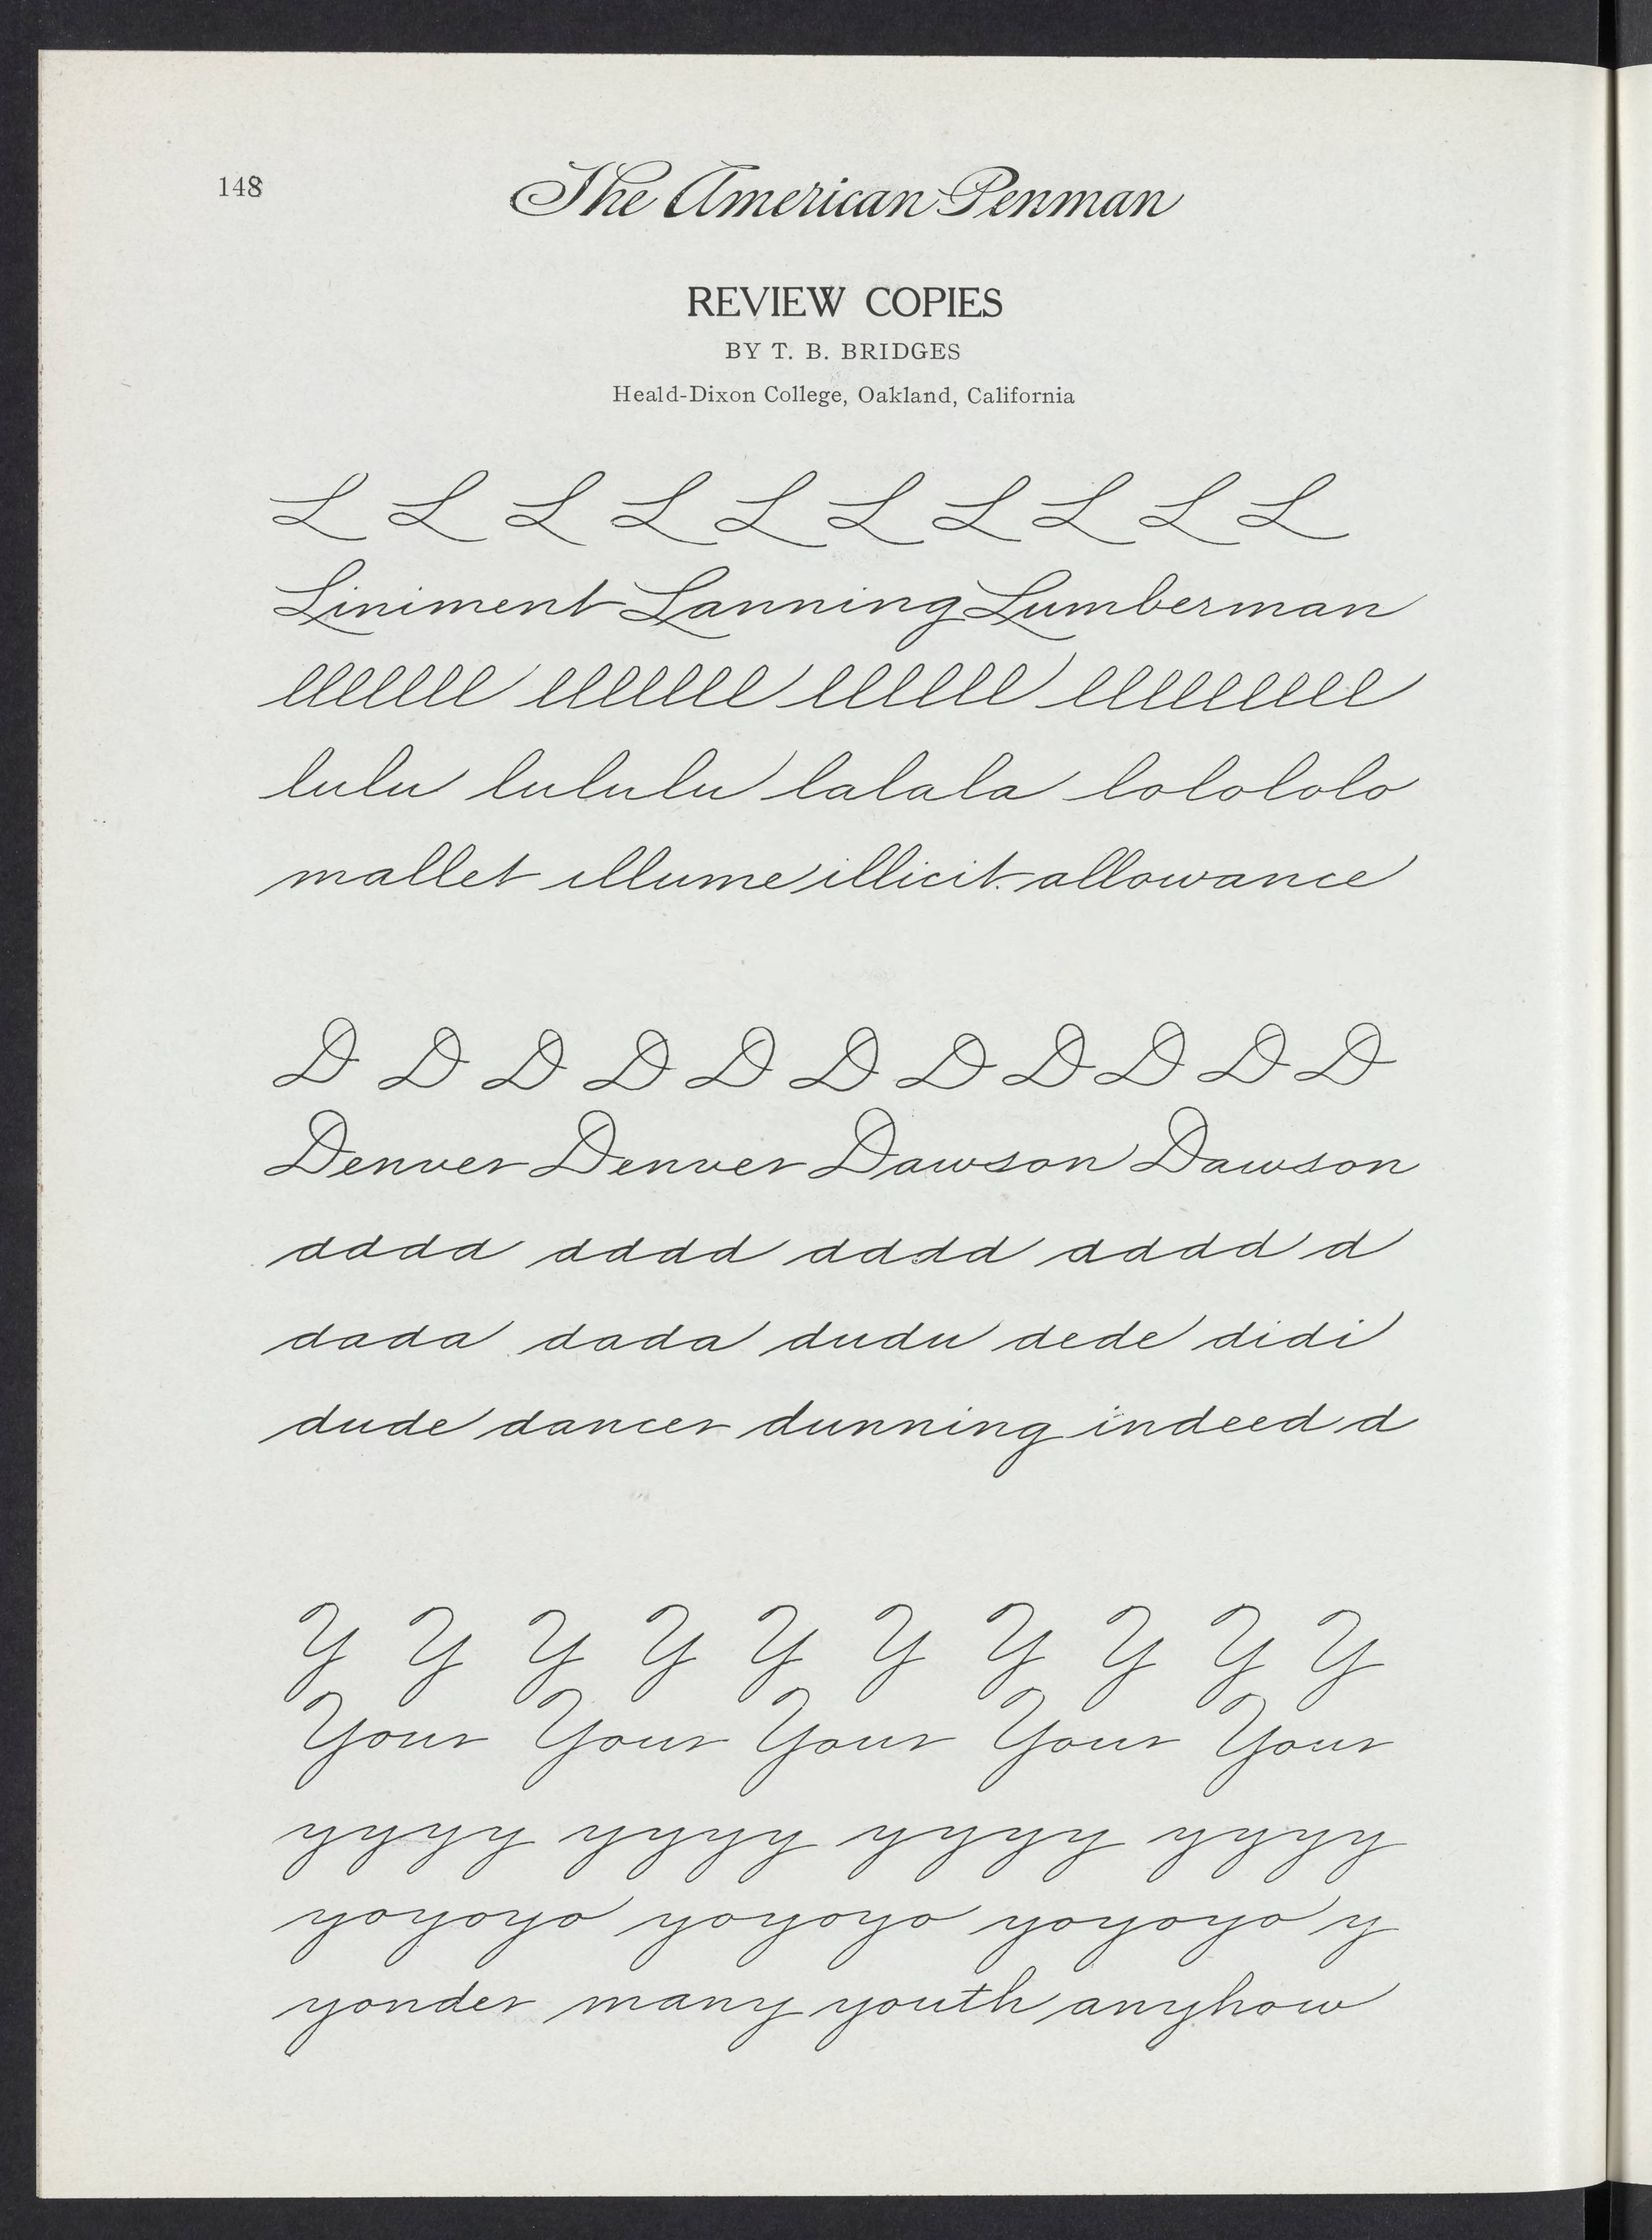 148
The American Penman
REVIEW COPIES
BY T. B. BRIDGES
Heald-Dixon College, Oakland, California
L L L L L L L L L L
Liniment Lanning Lumberman
lllllll lllllll llllll lllllllll
lulu lululu lalala lolololo
mallet illume illicit allowance
D D D D D D D D D D D
Denver Denver Dawson Dawson
dddd dddd dddd dddd d
dada dada dudu dede didi
dude dancer dunning indeed d
Y Y Y Y Y Y Y Y Y Y
Your Your Your Your Your
yyyy yyyy yyyy yyyy
yoyoyo yoyoyo yoyoyo y
yonder many youth anyhow